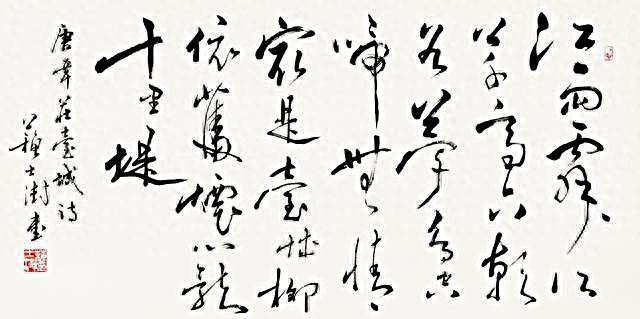 江雨霏霏江
草齊六朝
如夢鳥空
啼無情
最是臺城柳
依舊煙籠
十里堤
唐韋莊臺城詩
蘇士澍書